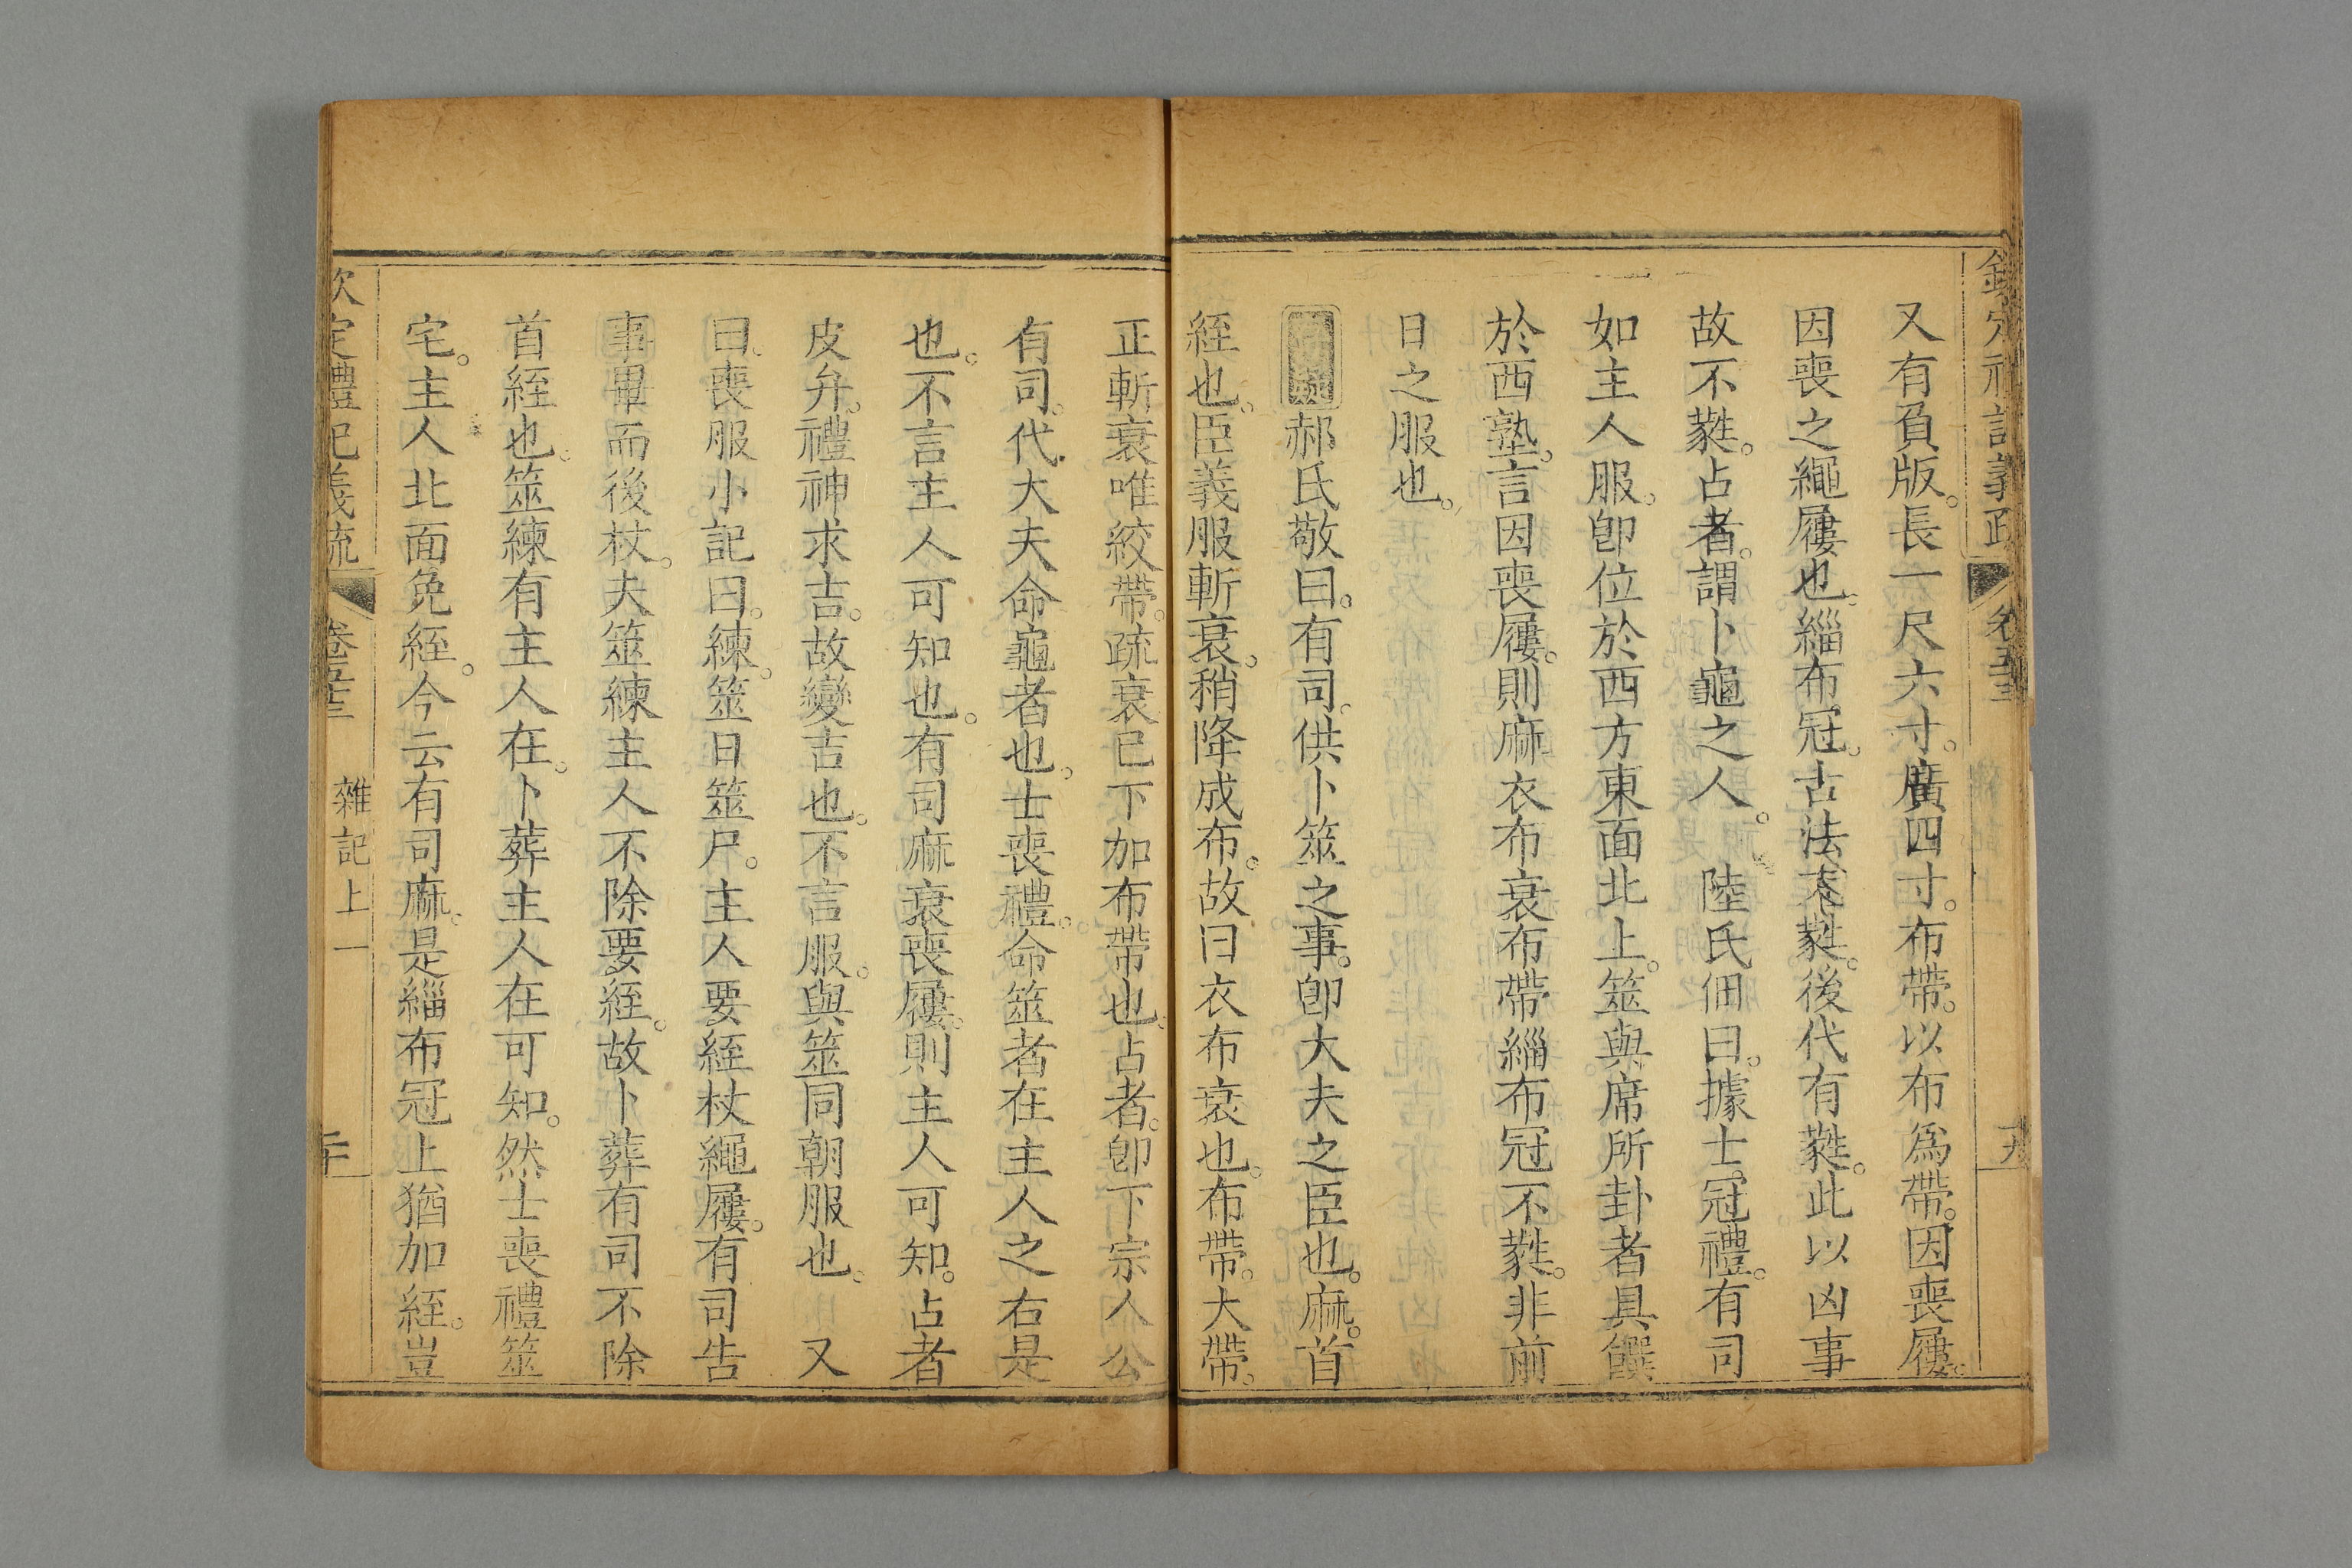 又有負版。長一尺六寸。廣四寸。布帶。以布爲帶。因喪屨。
因喪之繩屨也。緇布冠。古法不蕤。後代有蕤。此以凶事
故不蕤。占者。謂卜龜之人。 陸氏佃曰。據士冠禮。有司
如主人服。卽位於西方東面北上。筮與席所卦者具饌
於西塾。言因喪屨。則麻衣布衰布帶緇布冠不蕤。非前
日之服也。
郝氏敬曰。有司。供卜筮之事。卽大夫之臣也。麻。首
絰也。臣義服斬衰。稍降成布。故曰衣布衰也。布帶。大帶。
正斬衰唯絞帶。疏衰已下加布帶也。占者。卽下宗人公
有司。代大夫命龜者也。士喪禮。命筮者在主人之右是
也。不言主人可知也。有司麻衰喪屨。則主人可知。占者
皮弁。禮神求吉。故變吉也。不言服。與筮同朝服也。 又
曰。喪服小記曰。練。筮日筮尸。主人要絰杖繩屨。有司告
事畢而後杖。夫筮練主人不除要絰。故卜葬有司不除
首絰也。筮練有主人在。卜葬主人在可知。然士喪禮筮
宅。主人北面免絰。今云有司麻。是緇布冠上猶加絰。豈
欽定禮記義疏 卷五十三 雜記上一 二十